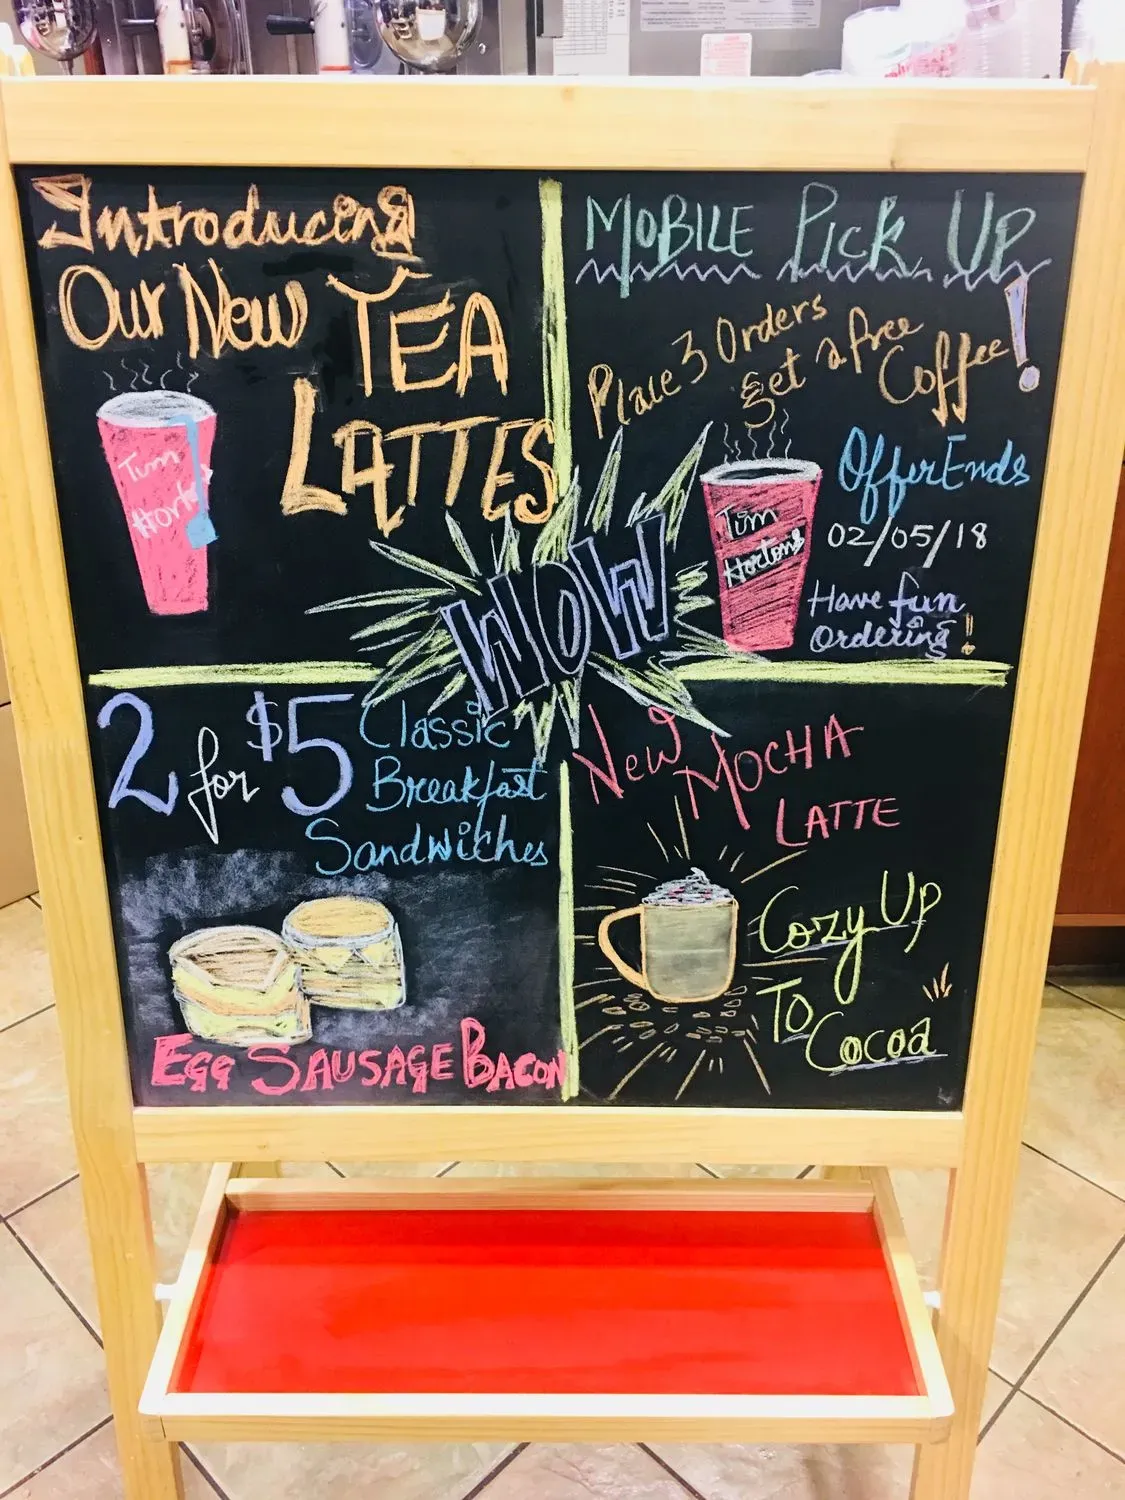 Introducing
Our New TEA
LATTES
Tim
Hortons
MOBILE PICK UP
Place 3 Orders
get a free
Coffee!
Tim
Hortons
Offer Ends
02/05/18
Have fun
Ordering!
WOW
2 for $5 Classic
Breakfast
Sandwiches
EGG SAUSAGE BACON
New MOCHA
LATTE
Cozy UP
To
Cocoa